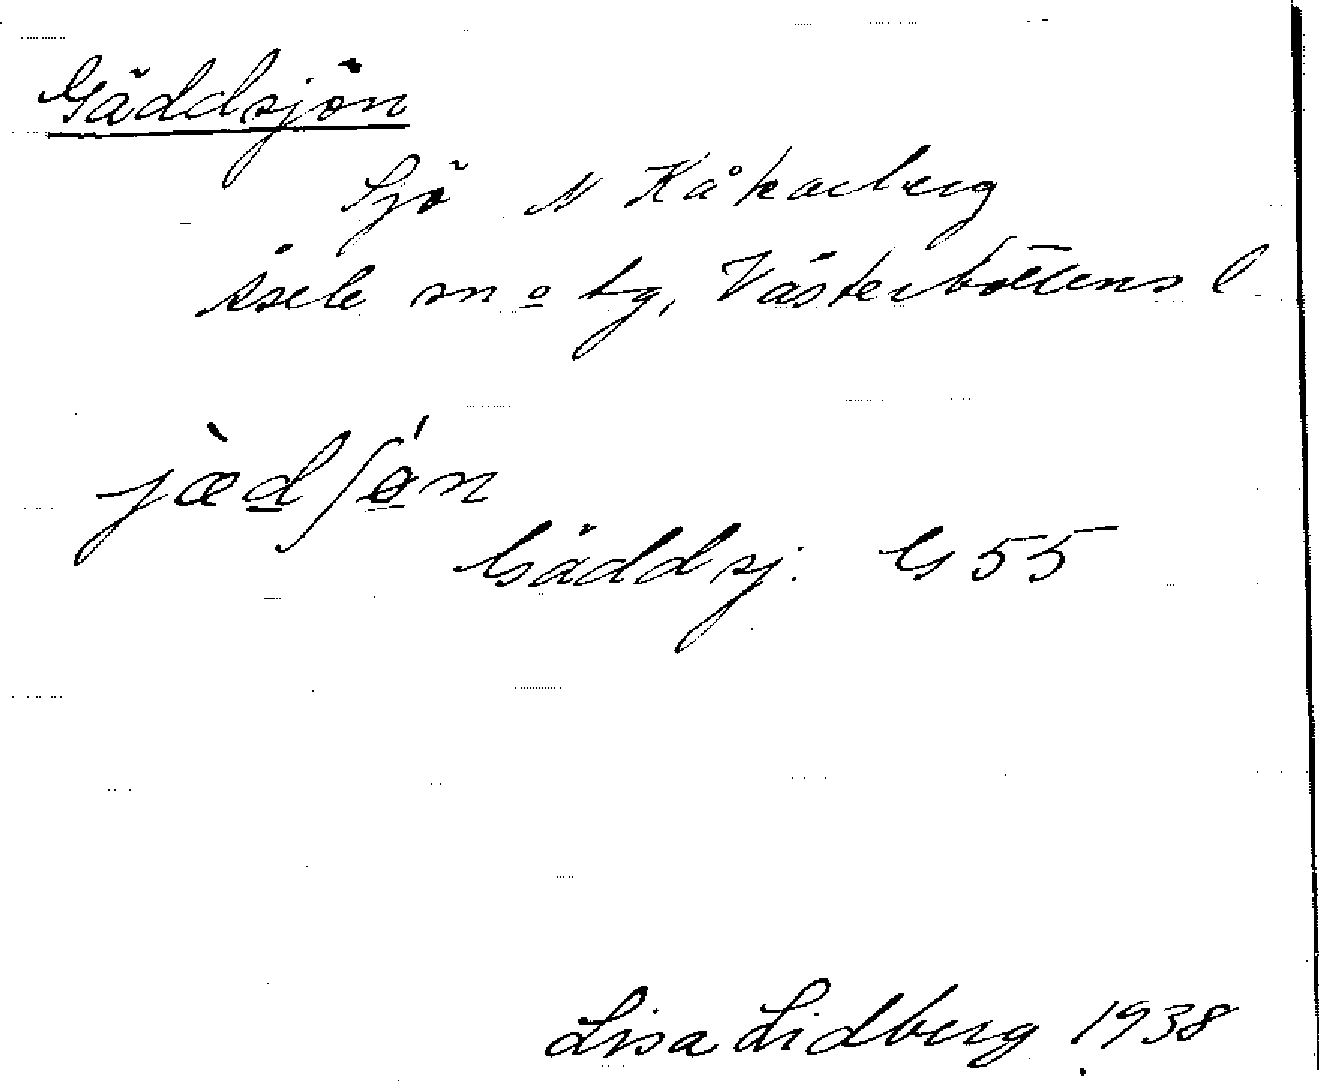 Gäddsjön
Sjö N Kåkarberg
Åsele sn o tg, Västerbottens l
jæ̀dʃǿn
Gäddsj. G 55
Lisa Lidberg 1938